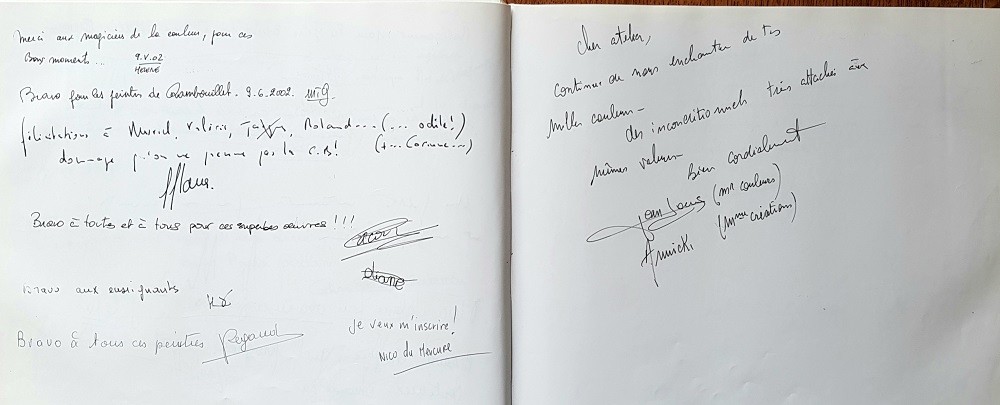 Merci aux magiciens de la couleur, pour ces
Bons moments... 9.V.02
HELENE
Bravo pour les peintres de Rambouillet. 9.6.2002. MG
félicitations à Muriel, Valérie, Roland... (... odile!)
dommage qu'on ne prenne pas la C.B! (+... Corinne...)
Bravo à toutes et à tous pour ces superbes œuvres !!!
diane
Bravo aux enseignants
Bravo à tous ces peintres
Je veux m'inscrire!
Nico du Mercure
Cher atelier,
continue de nous enchanter de tes
milles couleurs -
des inconditionnels très attachés aux
mêmes valeurs
Bien cordialement
Jean Louis (Mr couleurs)
Annick (Mme créations)